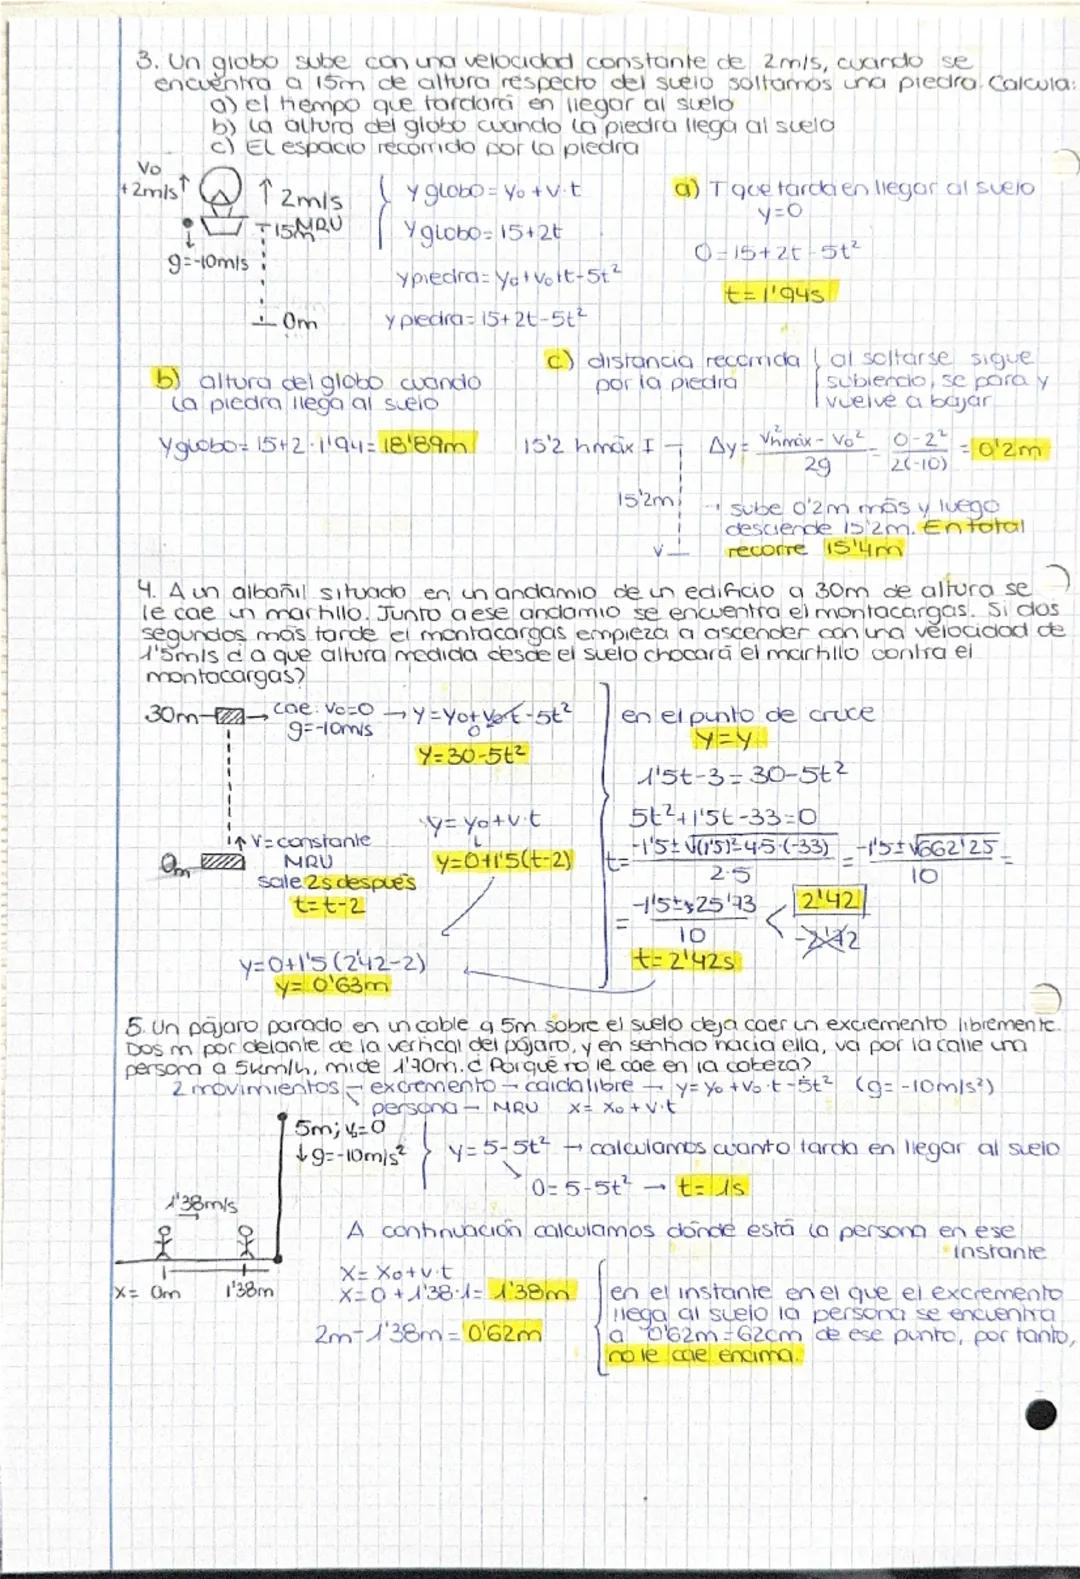 3. Un globo sube con una velocidad constante de 2m/s, cuando se
encuentra a 15m de altura respecto del suelo soltamos una piedra. Calcula:
a) el tiempo que tardará en llegar al suelo
b) La altura del globo cuando la piedra llega al suelo
c) El espacio recorrido por la piedra
Vo
+2m/s ↑
↑ 2m/s
15m MRU
g=-10m/s
0m
y globo = yo + v·t
y globo = 15+2t
y piedra = yo+vot-5t²
y piedra = 15+2t-5t²
a) T que tarda en llegar al suelo
y=0
0=15+2t-5t²
t=1'94s
b) altura del globo cuando
la piedra llega al suelo
y globo = 15+2·1'94 = 18'89m
c) distancia recorrida
por la piedra
al soltarse sigue
subiendo, se para y
vuelve a bajar
15'2 hmáx
15'2m
Δy = V²hmáx - Vo² / 2g = 0-2² / 2(-10) = 0'2m
→ sube 0'2m más y luego
desciende 15'2m. En total
recorre 15'4m
4. A un albañil situado en un andamio de un edificio a 30m de altura se
le cae un martillo. Junto a ese andamio se encuentra el montacargas. Si dos
segundos más tarde el montacargas empieza a ascender con una velocidad de
1'5m/s ¿a qué altura medida desde el suelo chocará el martillo contra el
montacargas?
30m → cae: Vo=0 → y=yo+vot-5t²
g=-10m/s 0
y=30-5t²
↑ V=constante
MRU
0m
sale 2s después
t=t-2
y=yo+v·t
y=0+1'5(t-2)
y=0+1'5(2'42-2)
y= 0'63m
en el punto de cruce
y=y
1'5t-3=30-5t²
5t²+1'5t-33=0
t= -1'5±√(1'5)²-4·5·(-33) / 2·5 = -1'5±√662'25 / 10 =
= -1'5±25'73 / 10 < 2'42
-2'72
t=2'42s
5. Un pájaro parado en un cable a 5m sobre el suelo deja caer un excremento libremente.
Dos m por delante de la vertical del pájaro, y en sentido hacia ella, va por la calle una
persona a 5km/h, mide 1'70m. ¿Porqué no le cae en la cabeza?
2 movimientos → excremento → caida libre → y=yo+vo·t-5t² (g=-10m/s²)
persona → MRU x=xo+v·t
5m; vo=0
↓g=-10m/s²
y=5-5t² → calculamos cuanto tarda en llegar al suelo
0=5-5t² → t=1s
1'38m/s
x= 0m 1'38m
A continuación calculamos dónde está la persona en ese
instante
x=xo+v·t
x=0+1'38·1= 1'38m
2m-1'38m= 0'62m
en el instante en el que el excremento
llega al suelo la persona se encuentra
a 0'62m=62cm de ese punto, por tanto,
no le cae encima.